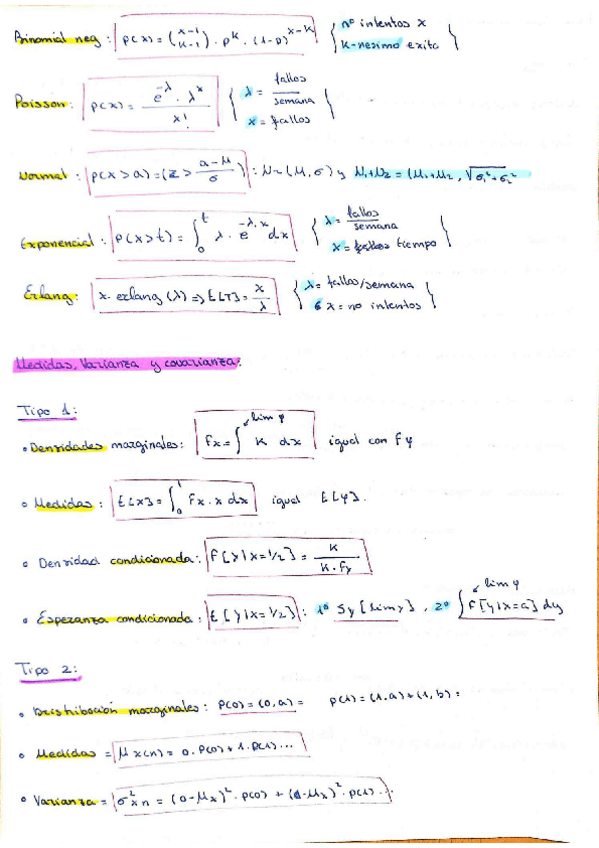 Binomial neg: P(x) = (x-1 / k-1) · p^k · (1-p)^(x-k) { nº intentos x
k-nesimo exito }
Poisson: P(x) = e^-λ · λ^x / x! { λ = fallos / semana
x = fallos }
Normal: P(x > a) = (z > a-μ / σ) : N~(μ, σ) y N1+N2 = (μ1+μ2, √σ1²+σ2²
Exponencial: P(x>t) = ∫0^t λ · e^-λ·x dx { λ = fallos / semana
x = tiempo }
Erlang: x · erlang (λ) => E[T] = x / λ { λ = fallos/semana
x = no intentos }
Medidas, Varianza y covarianza:
Tipo 1:
• Densidades marginales: Fx = ∫ lim y K dx igual con Fy
• Medidas: E[x] = ∫0^1 Fx · x dx igual E[y].
• Densidad condicionada: F[y|x=1/2] = K / K·Fy
• Esperanza condicionada: E[y|x=1/2] : 1º Sy[lim y], 2º ∫ lim y F[y|x=a] dy
Tipo 2:
• Distribución marginales: P(0) = (0,a) = P(1) = (1,a)+(1,b) =
• Medidas = μx(n) = 0·P(0) + 1·P(1)...
• Varianza = σ²xn = (0-μx)² · P(0) + (1-μx)² · P(1)..